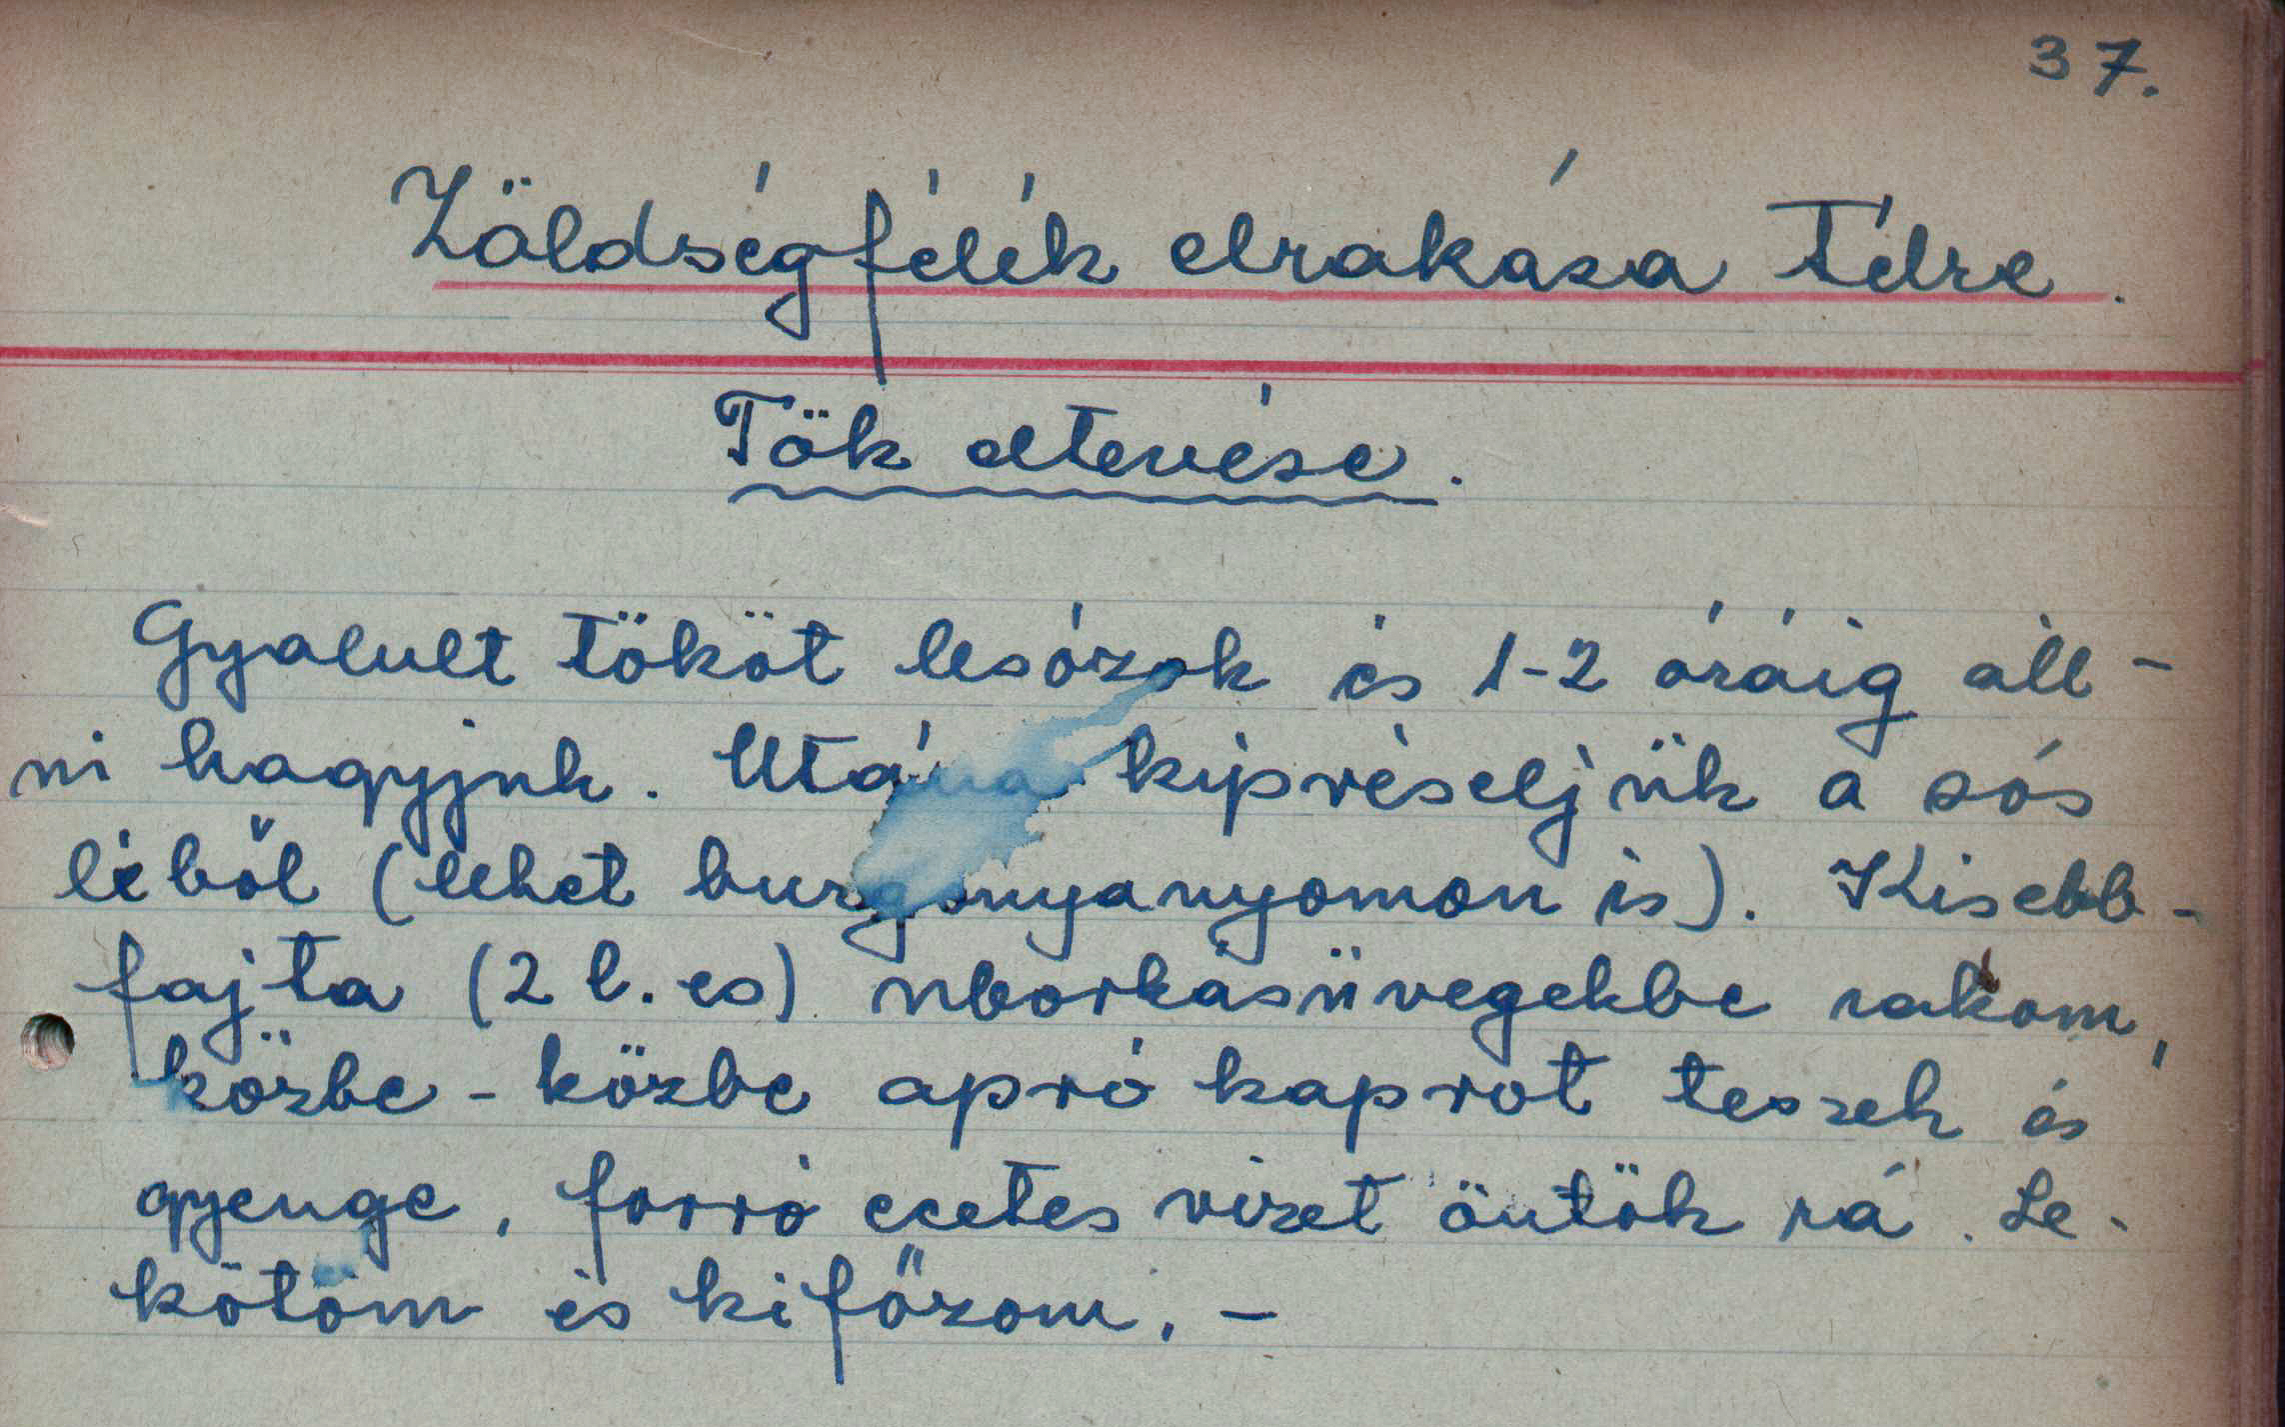 37.
Zöldségfélék elrakása Télre.
Tök eltevése.
Gyalult tököt lesózok és 1-2 óráig áll-
ni hagyjuk. Utána kipréseljük a sós
léből (lehet burgonyanyomon is). Kisebb-
fajta (2 l. es) uborkásüvegekbe rakom,
közbe-közbe apró kaprot teszek és
gyenge, forró ecetes vizet öntök rá. Le-
kötöm és kifőzom. -